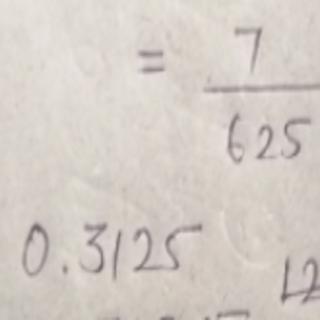 = 7/625
0.3125
12